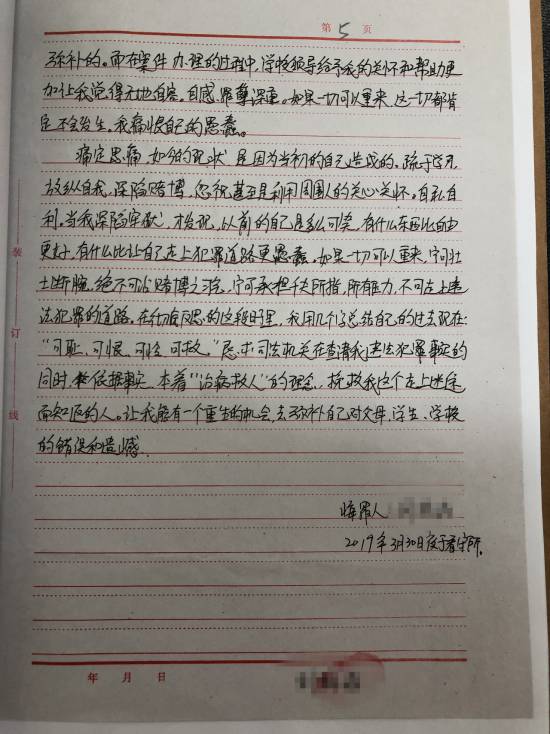 第 5 页
弥补的。而在案件办理的过程中，学校领导给予我的关怀和帮助更
加让我觉得无地自容。自感罪孽深重。如果一切可以重来，这一切都肯
定不会发生。我痛恨自己的愚蠢。
痛定思痛，如今的现状是因为当初的自己造成的。疏于学习，
放纵自我，深陷赌博，忽视甚至是利用周围人的关心关怀。自私自
利。当我深陷牢狱，才发现，以前的自己是多么可笑，有什么东西比自由
更好，有什么比让自己走上犯罪道路更愚蠢。如果一切可以重来，宁可壮
士断腕，绝不可沾赌博之淫。宁可承担千夫所指，所有压力，不可走上违
法犯罪的道路。在彻底反思的这段日子里，我用几个字总结自己的过去现在：
“可耻、可恨、可怜、可救。”恳求司法机关在查清我违法犯罪事实的
同时，依据事实，本着“治病救人”的理念，挽救我这个走上迷途
而知返的人。让我能有一个重生的机会，去弥补自己对父母、学生、学校
的错误和遗憾。
悔罪人
2019年3月30日夜于看守所。
年 月 日
装
订
线